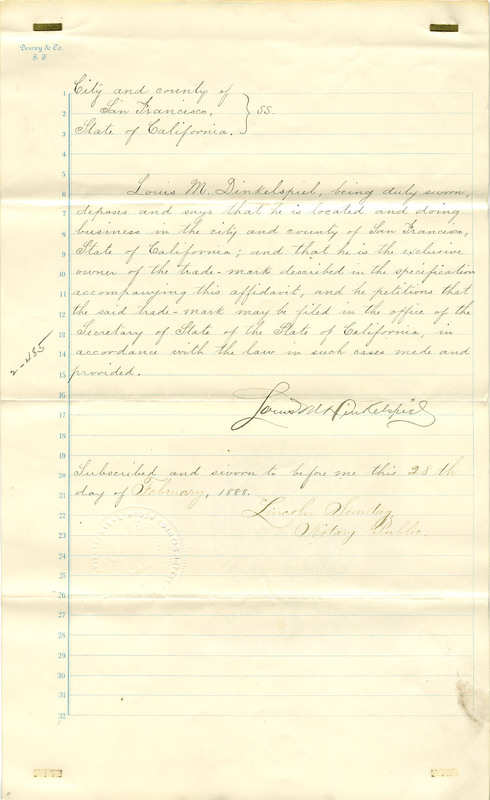 Dewey & Co.
S. F.
1 City and county of
2 San Francisco, } SS.
3 State of California.
4
5
6 Louis M. Dinkelspiel, being duly sworn,
7 deposes and says that he is located and doing
8 business in the city and county of San Francisco,
9 State of California; and that he is the exclusive
10 owner of the trade-mark described in the specification
11 accompanying this affidavit, and he petitions that
12 the said trade-mark may be filed in the office of the
13 Secretary of State of the State of California, in
14 accordance with the law in such cases made and
15 provided.
2-455
16
17 Louis M Dinkelspiel
18
19
20 Subscribed and sworn to before me this 28th
21 day of February, 1888.
22 Lincoln Sonntag
23 Notary Public.
24
25
26
27
28
29
30
31
32